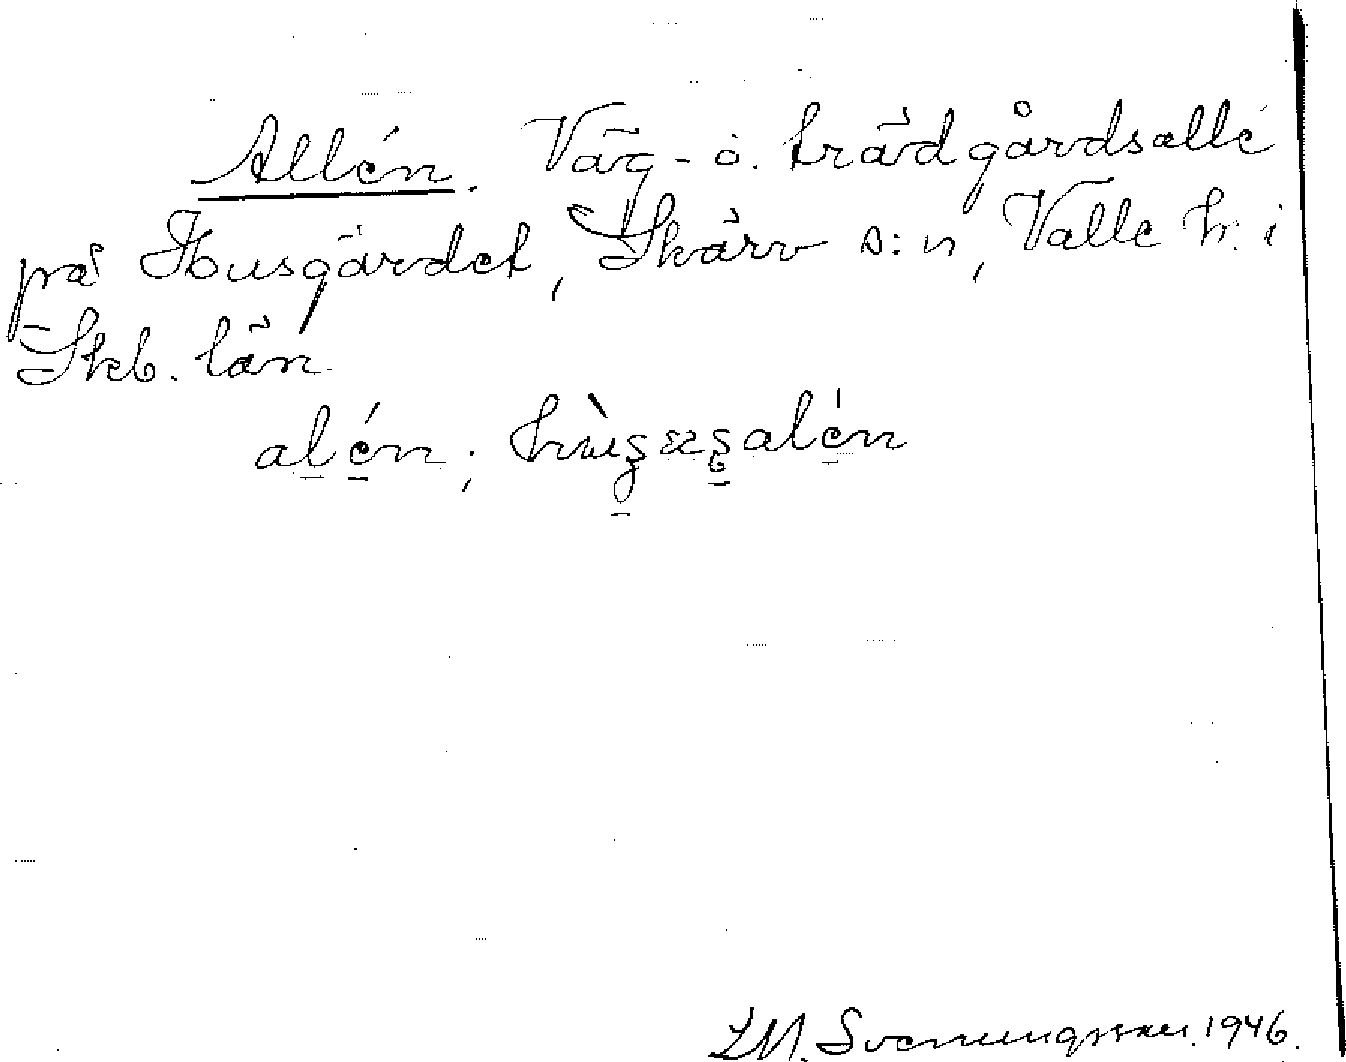 Allén. Väg- o. trädgårdsallé
på Husgärdet, Skärv s:n, Valle h. i
Skb. län
alén;
LM. Svenungsson. 1946.